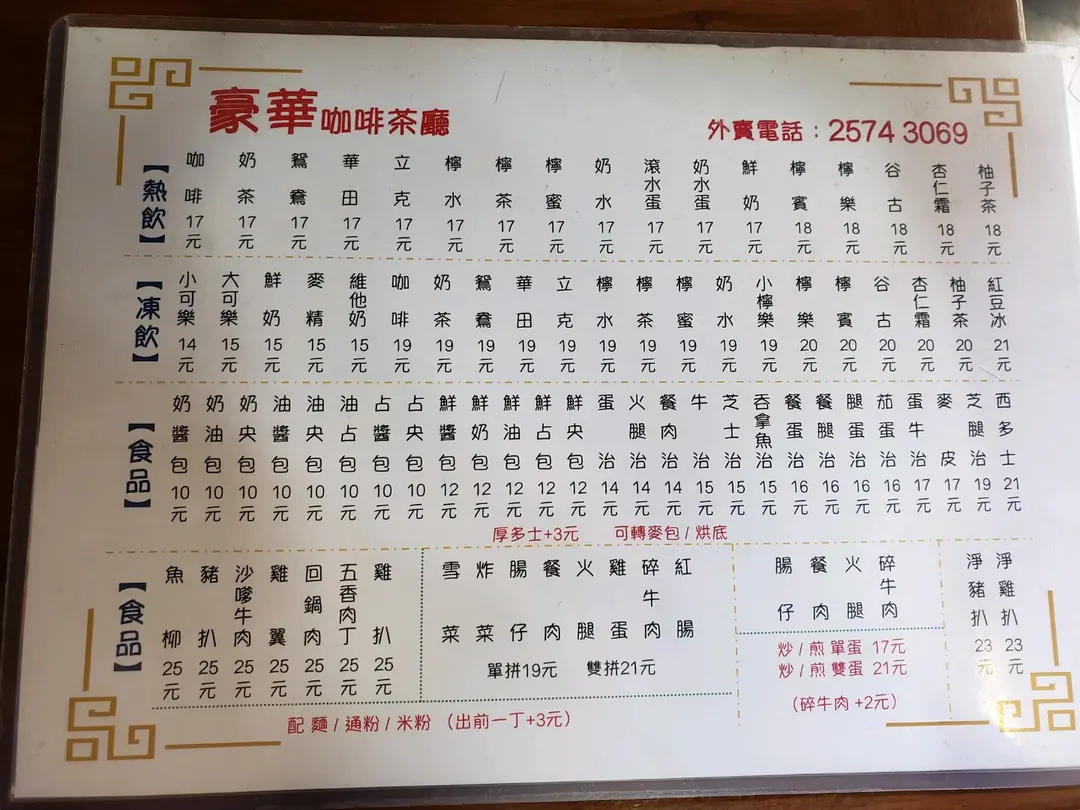 豪華咖啡茶廳
外賣電話：2574 3069
【熱飲】
咖啡 17元
奶茶 17元
鴛鴦 17元
華田 17元
立克 17元
檸水 17元
檸茶 17元
檸蜜 17元
奶水 17元
滾水蛋 17元
奶水蛋 17元
鮮奶 17元
檸賓 18元
檸樂 18元
谷古 18元
杏仁霜 18元
柚子茶 18元
【凍飲】
小可樂 14元
大可樂 15元
鮮奶 15元
麥精 15元
維他奶 15元
咖啡 19元
奶茶 19元
鴛鴦 19元
華田 19元
立克 19元
檸水 19元
檸茶 19元
檸蜜 19元
奶水 19元
小檸樂 19元
檸樂 20元
檸賓 20元
谷古 20元
杏仁霜 20元
柚子茶 20元
紅豆冰 21元
【食品】
奶醬包 10元
奶油包 10元
奶央包 10元
油醬包 10元
油央包 10元
油占包 10元
占醬包 10元
占央包 10元
鮮醬包 12元
鮮奶包 12元
鮮油包 12元
鮮占包 12元
鮮央包 12元
蛋治 14元
火腿治 14元
餐肉治 14元
牛治 15元
芝士治 15元
吞拿魚治 15元
餐蛋治 16元
餐腿治 16元
腿蛋治 16元
茄蛋治 16元
蛋牛治 17元
麥皮 17元
芝腿治 19元
西多士 21元
厚多士+3元 可轉麥包/烘底
【食品】
魚柳 25元
豬扒 25元
沙嗲牛肉 25元
雞翼 25元
回鍋肉 25元
五香肉丁 25元
雞扒 25元
雪菜
炸菜
腸仔
餐肉
火腿
雞蛋
碎牛肉
紅腸
單拼19元 雙拼21元
配 麵/通粉/米粉 （出前一丁+3元）
腸仔
餐肉
火腿
碎牛肉
炒/煎 單蛋 17元
炒/煎 雙蛋 21元
（碎牛肉 +2元）
淨豬扒 23元
淨雞扒 23元